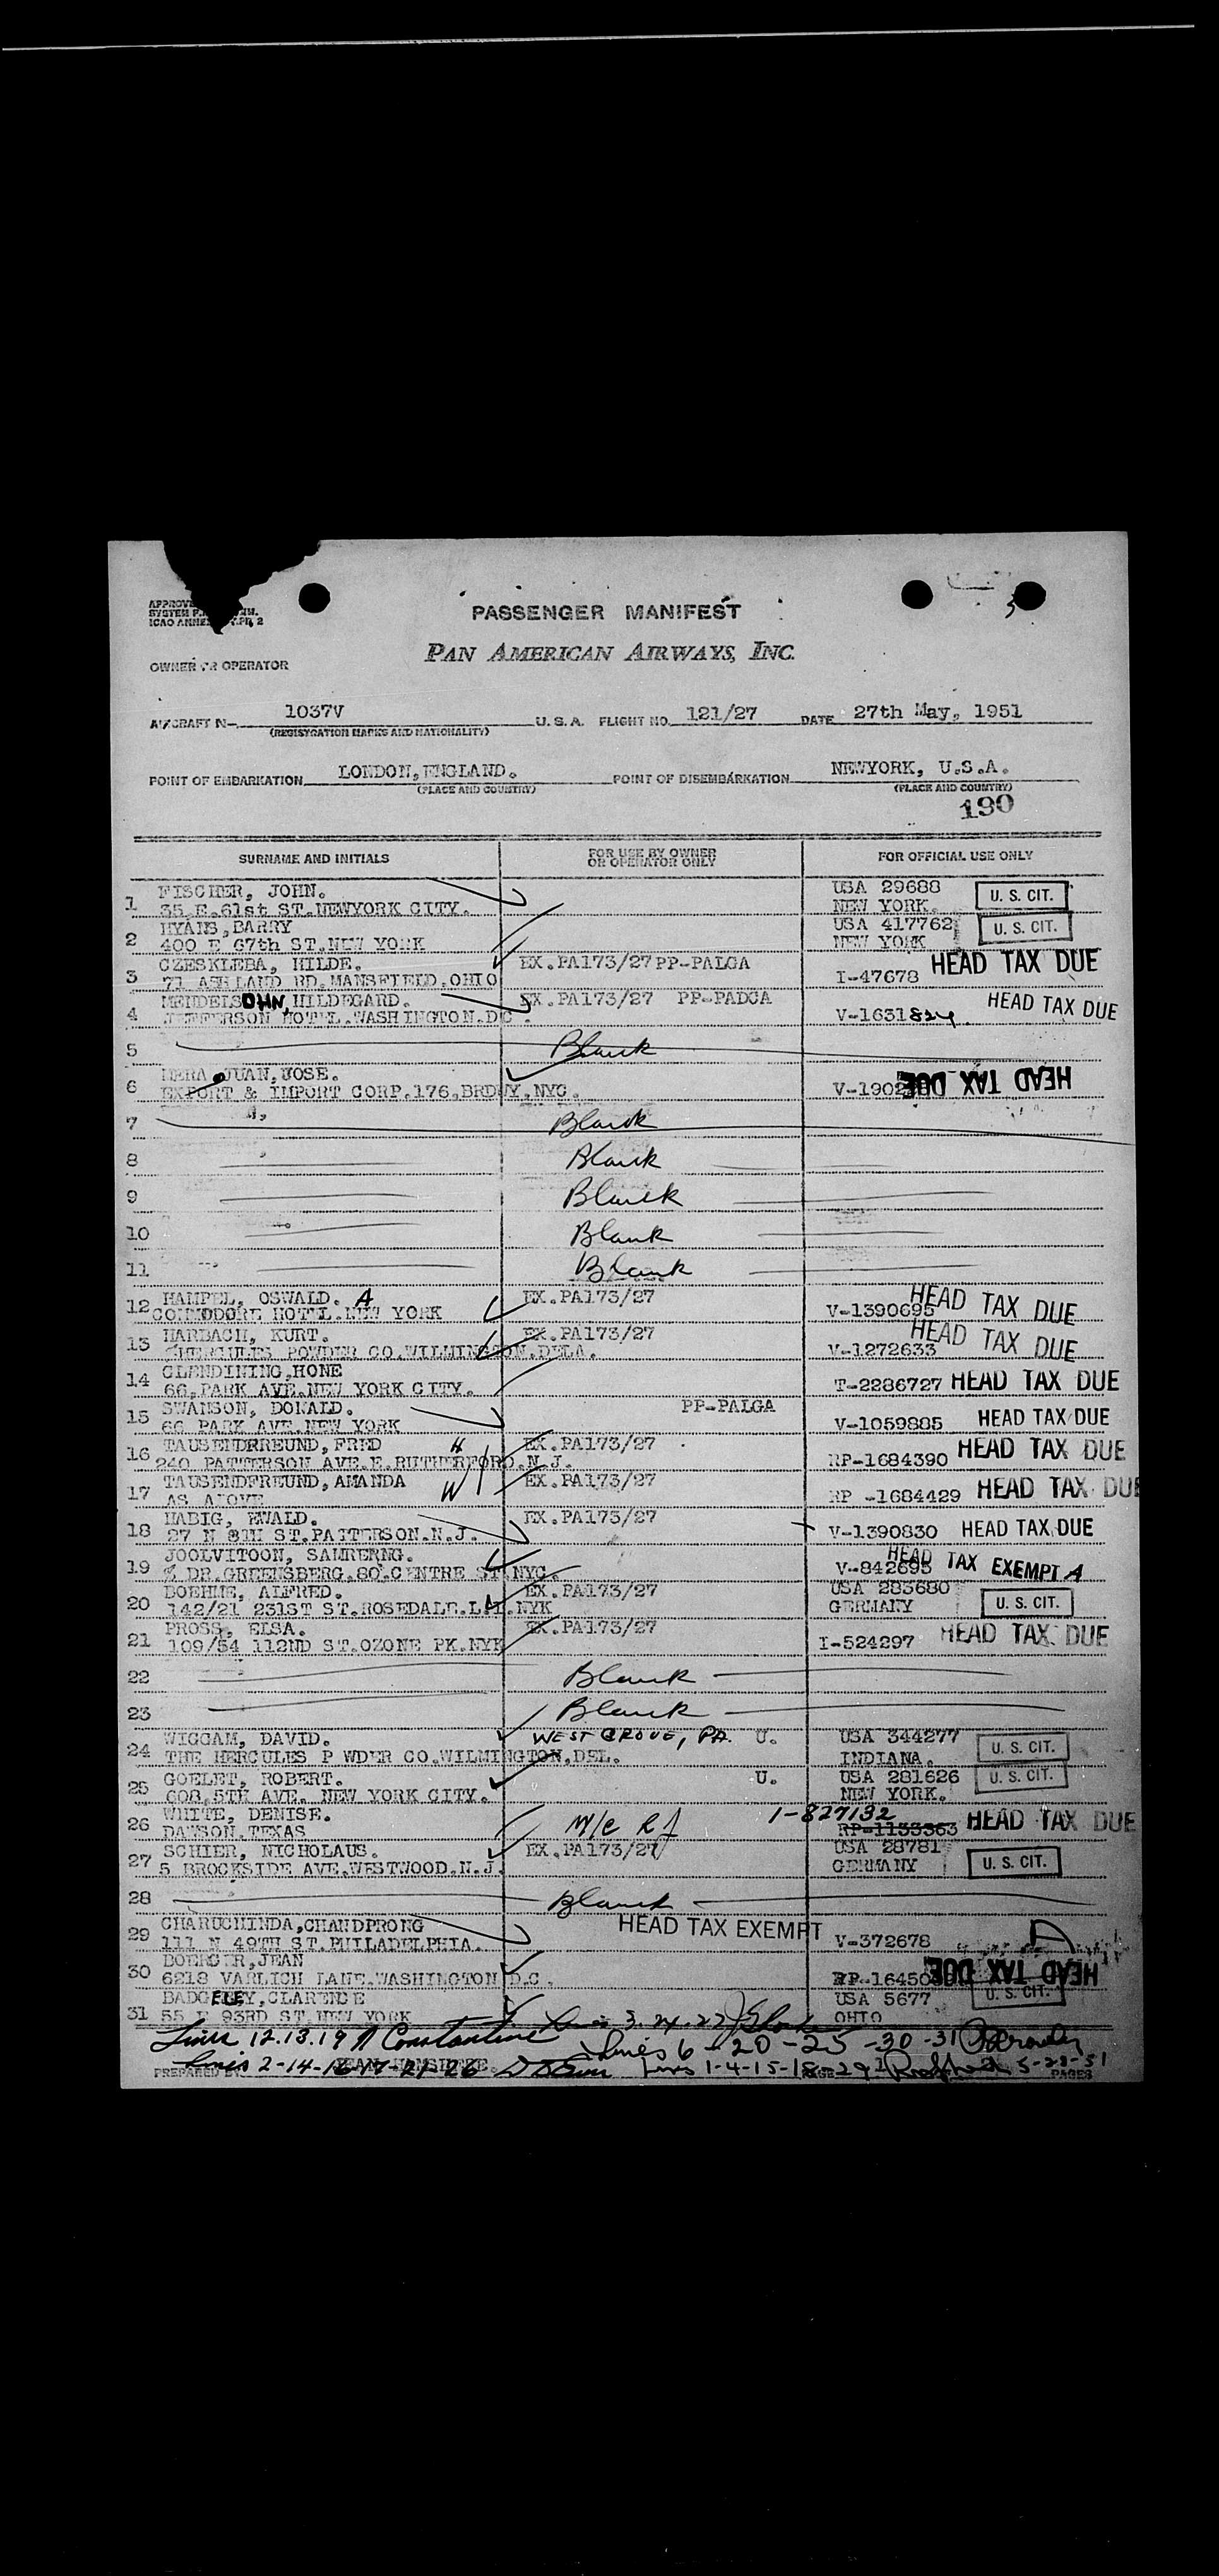 PASSENGER MANIFEST
PAN AMERICAN AIRWAYS, INC.
OWNER OR OPERATOR
AIRCRAFT N— 1037V U. S. A. FLIGHT NO. 121/27 DATE 27th May, 1951
(REGISTRATION MARKS AND NATIONALITY)
POINT OF EMBARKATION LONDON, ENGLAND. POINT OF DISEMBARKATION NEWYORK, U.S.A.
(PLACE AND COUNTRY) (PLACE AND COUNTRY)
190
SURNAME AND INITIALS FOR USE BY OWNER OR OPERATOR ONLY FOR OFFICIAL USE ONLY
1 FISCHER, JOHN. USA 29688 U. S. CIT.
35 E.61st ST.NEWYORK CITY. NEW YORK.
2 HYAMS, BARRY USA 417762 U. S. CIT.
400 E 67th ST.NEW YORK NEW YORK
3 CZESKLEBA, HILDE. EX.PA173/27 PP-PALGA HEAD TAX DUE
71 ASHLAND RD.MANSFIELD.OHIO I-47678
4 MENDELSOHN, HILDEGARD. EX.PA173/27 PP-PADCA HEAD TAX DUE
JEFFERSON HOTEL.WASHINGTON.DC. V-1631824
5 Blank
6 JUAN, JOSE. HEAD TAX DUE
EXPORT & IMPORT CORP.176,BRDWY,NYC. V-1902
7 Blank
8 Blank
9 Blank
10 Blank
11 Blank
12 HAMPEL, OSWALD. A EX.PA173/27 HEAD TAX DUE
COMMODORE HOTEL.NEW YORK V-1390695
13 HARBACH, KURT. EX.PA173/27 HEAD TAX DUE
HERCULES POWDER CO.WILMINGTON.DELA. V-1272633
14 CLENDINING, HONE
66,PARK AVE.NEW YORK CITY. T-2286727 HEAD TAX DUE
15 SWANSON, DONALD. PP-PALGA
66 PARK AVE.NEW YORK V-1059885 HEAD TAX DUE
16 TAUSENDFREUND, FRED H EX.PA173/27
240 PATTERSON AVE.E.RUTHERFORD.N.J. RP-1684390 HEAD TAX DUE
17 TAUSENDFREUND, AMANDA W EX.PA173/27
AS ABOVE RP -1684429 HEAD TAX DUE
18 HABIG, EWALD. EX.PA173/27
27 N 8TH ST.PATTERSON.N.J. V-1390830 HEAD TAX DUE
19 JOOLVITOON, SAMRERNG. HEAD TAX EXEMPT A
% DR.GREENSBERG.80.CENTRE ST.NYC. V-842695
20 BOEHME, ALFRED. EX.PA173/27 USA 283680 U. S. CIT.
142/21 231ST ST.ROSEDALE.L.I.NYK GERMANY
21 PROSS, ELSA. EX.PA173/27
109/54 112ND ST.OZONE PK.NYK I-524297 HEAD TAX DUE
22 Blank
23 Blank
24 WIGGAM, DAVID. WEST GROVE, PA. U. USA 344277 U. S. CIT.
THE HERCULES P WDER CO.WILMINGTON,DEL. INDIANA.
25 GOELET, ROBERT. U. USA 281626 U. S. CIT.
608,5TH AVE. NEW YORK CITY. NEW YORK.
26 WHITE, DENISE. 1-827132
DAWSON.TEXAS RP-1133363 HEAD TAX DUE
27 SCHIER, NICHOLAUS. EX.PA173/27 USA 28781
5 BROCKSIDE AVE.WESTWOOD.N.J. GERMANY U. S. CIT.
28 Blank
29 CHARUCHINDA, CHANDPRONG HEAD TAX EXEMPT
111 N 49TH ST.PHILADELPHIA. V-372678
30 BOERGER, JEAN HEAD TAX DUE
6218 VARLICH LANE.WASHINGTON D.C. RP-1645
31 BADGELEY, CLARENCE USA 5677 U. S. CIT.
55 E 93RD ST.NEW YORK OHIO
Lines 12.13.19 Constantine
Lines 6-20-25-30-31
Lines 2-14-16-17-21-26
Lines 1-4-15-18-29 5-28-51
PREPARED BY PAGE PAGES